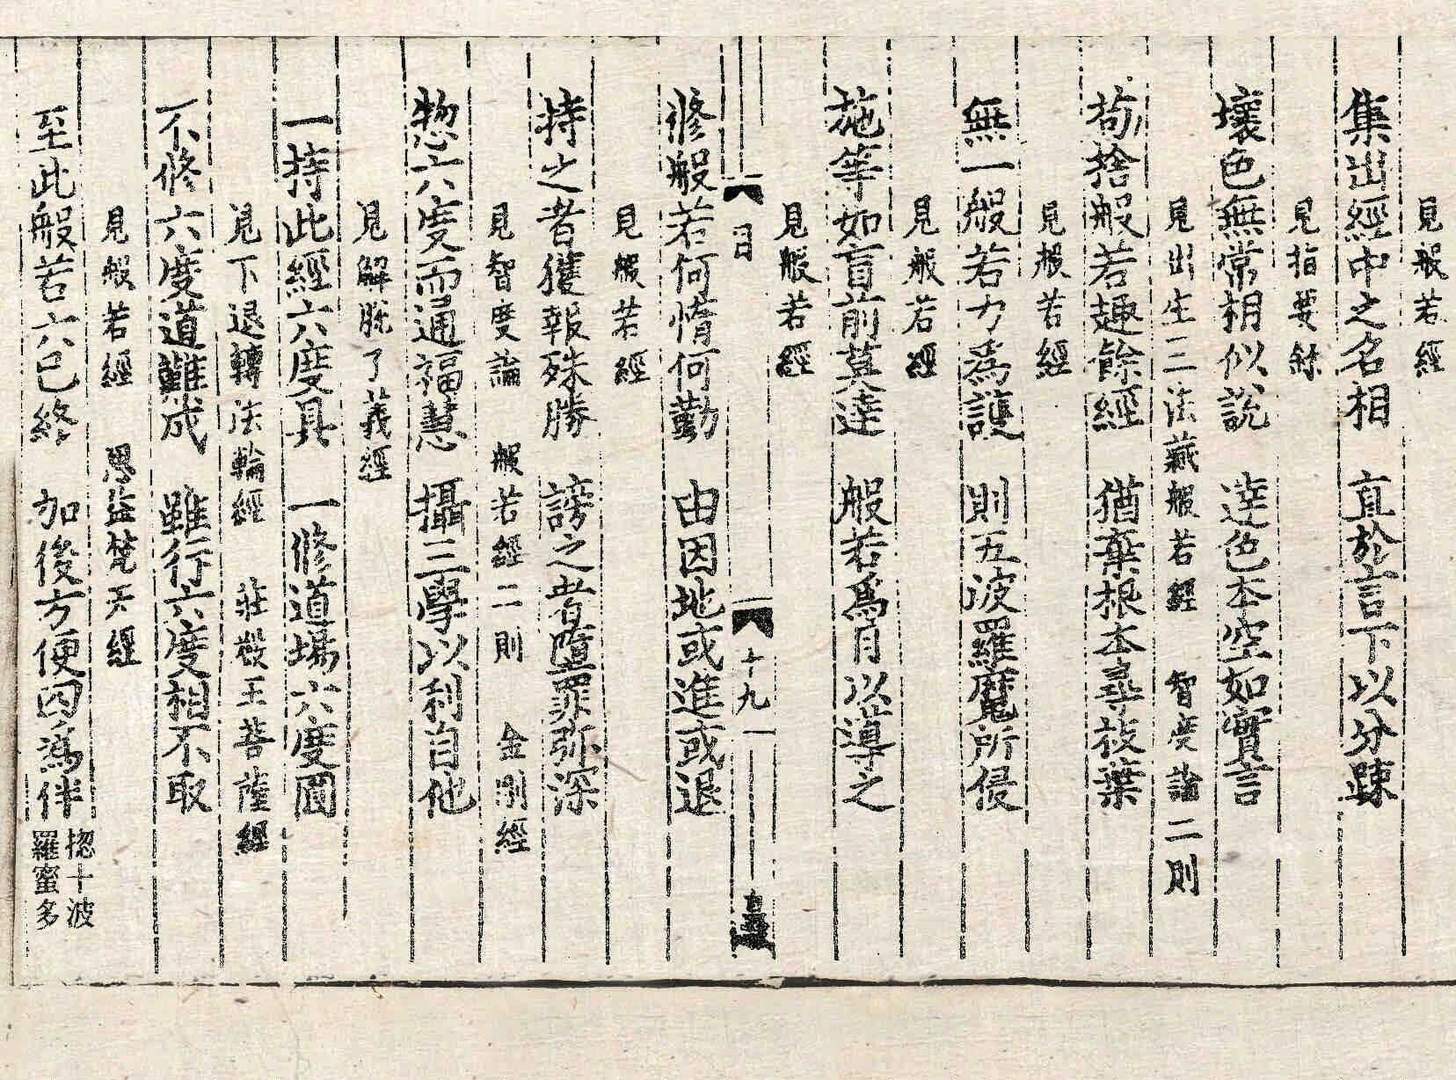 見般若經
集出經中之名相　直於言下以分踈
見指要鈔
壞色無常相似說　達色本空如實言
見出生三法藏般若經　智度論二則
苟捨般若趣餘經　猶棄根本尋枝葉
見般若經
無一般若力為護　則五波羅魔所侵
見般若經
施等如盲前莫達　般若爲目以導之
見般若經
目　十九
修般若何惰何勤　由因地或進或退
見般若經
持之者獲報殊勝　謗之者墮罪弥深
見智度論　般若經二則　金剛經
惣六度而通福慧　攝三學以利自他
見解脫了義經
一持此經六度具　一修道場六度圓
見下退轉法輪經　莊嚴王菩薩經
不修六度道難成　雖行六度相不取
見般若經　思益梵天經
至此般若六已終　加後方便四為伴
揔十波
羅蜜多